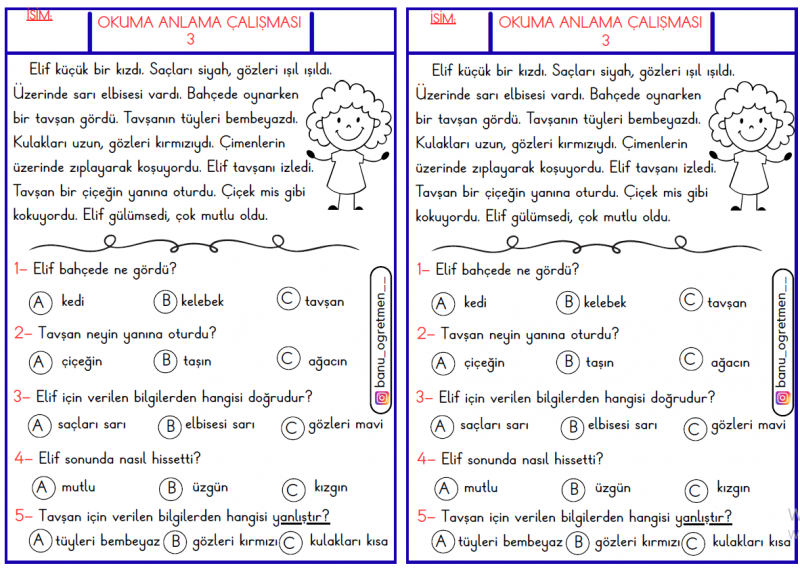 İSİM:
OKUMA ANLAMA ÇALIŞMASI
3
Elif küçük bir kızdı. Saçları siyah, gözleri ışıl ışıldı.
Üzerinde sarı elbisesi vardı. Bahçede oynarken
bir tavşan gördü. Tavşanın tüyleri bembeyazdı.
Kulakları uzun, gözleri kırmızıydı. Çimenlerin
üzerinde zıplayarak koşuyordu. Elif tavşanı izledi.
Tavşan bir çiçeğin yanına oturdu. Çiçek mis gibi
kokuyordu. Elif gülümsedi, çok mutlu oldu.
1- Elif bahçede ne gördü?
A kedi B kelebek C tavşan
2- Tavşan neyin yanına oturdu?
A çiçeğin B taşın C ağacın
3- Elif için verilen bilgilerden hangisi doğrudur?
A saçları sarı B elbisesi sarı C gözleri mavi
4- Elif sonunda nasıl hissetti?
A mutlu B üzgün C kızgın
5- Tavşan için verilen bilgilerden hangisi yanlıştır?
A tüyleri bembeyaz B gözleri kırmızı C kulakları kısa
banu_ogretmen__
İSİM:
OKUMA ANLAMA ÇALIŞMASI
3
Elif küçük bir kızdı. Saçları siyah, gözleri ışıl ışıldı.
Üzerinde sarı elbisesi vardı. Bahçede oynarken
bir tavşan gördü. Tavşanın tüyleri bembeyazdı.
Kulakları uzun, gözleri kırmızıydı. Çimenlerin
üzerinde zıplayarak koşuyordu. Elif tavşanı izledi.
Tavşan bir çiçeğin yanına oturdu. Çiçek mis gibi
kokuyordu. Elif gülümsedi, çok mutlu oldu.
1- Elif bahçede ne gördü?
A kedi B kelebek C tavşan
2- Tavşan neyin yanına oturdu?
A çiçeğin B taşın C ağacın
3- Elif için verilen bilgilerden hangisi doğrudur?
A saçları sarı B elbisesi sarı C gözleri mavi
4- Elif sonunda nasıl hissetti?
A mutlu B üzgün C kızgın
5- Tavşan için verilen bilgilerden hangisi yanlıştır?
A tüyleri bembeyaz B gözleri kırmızı C kulakları kısa
banu_ogretmen__